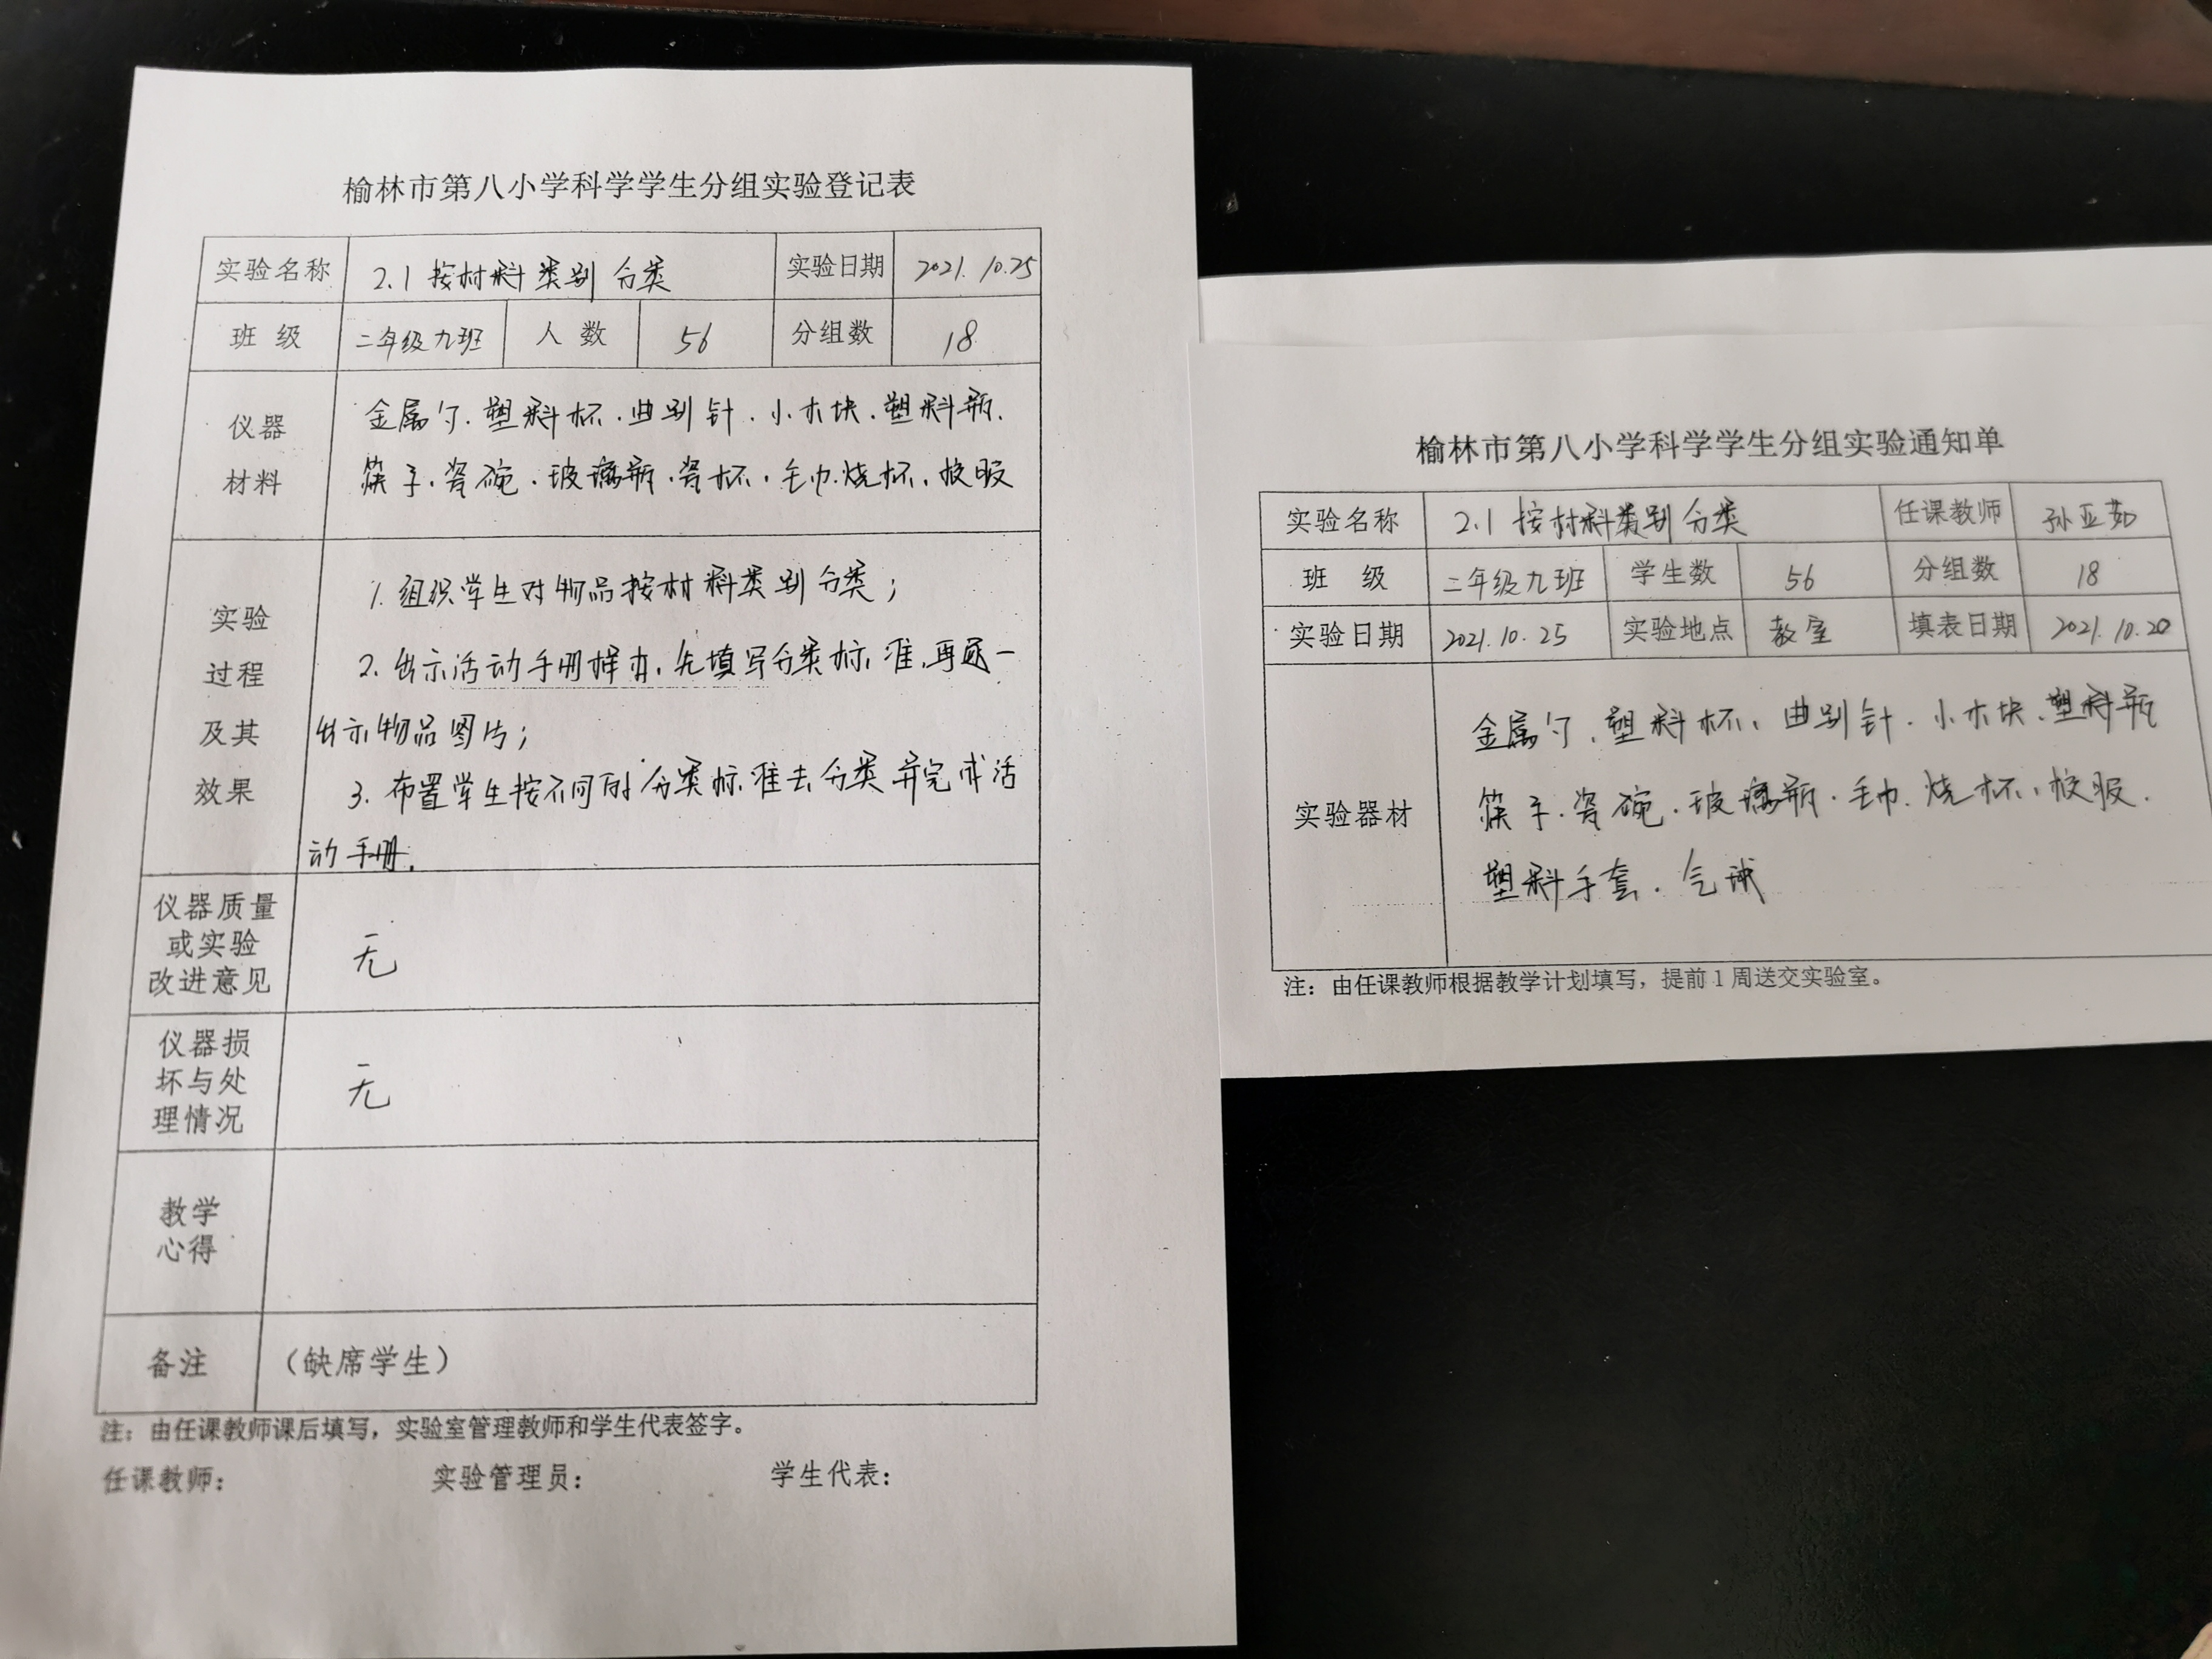 榆林市第八小学科学学生分组实验登记表
实验名称 2.1 按材料类别分类 实验日期 2021.10.25
班 级 二年级九班 人 数 56 分组数 18
仪器
材料
金属勺.塑料杯.曲别针.小木块.塑料瓶.
筷子.瓷碗.玻璃瓶.瓷杯.毛巾.烧杯.校服
实验
过程
及其
效果
1.组织学生对物品按材料类别分类；
2.出示活动手册样本,先填写分类标准,再逐一
出示物品图片；
3.布置学生按不同的分类标准去分类并完成活
动手册.
仪器质量
或实验
改进意见
无
仪器损
坏与处
理情况
无
教学
心得
备注 （缺席学生）
注：由任课教师课后填写，实验室管理教师和学生代表签字。
任课教师： 实验管理员： 学生代表：
榆林市第八小学科学学生分组实验通知单
实验名称 2.1 按材料类别分类 任课教师 孙亚茹
班 级 二年级九班 学生数 56 分组数 18
实验日期 2021.10.25 实验地点 教室 填表日期 2021.10.20
实验器材
金属勺.塑料杯.曲别针.小木块.塑料瓶
筷子.瓷碗.玻璃瓶.毛巾.烧杯.校服.
塑料手套.气球
注：由任课教师根据教学计划填写，提前 1 周送交实验室。